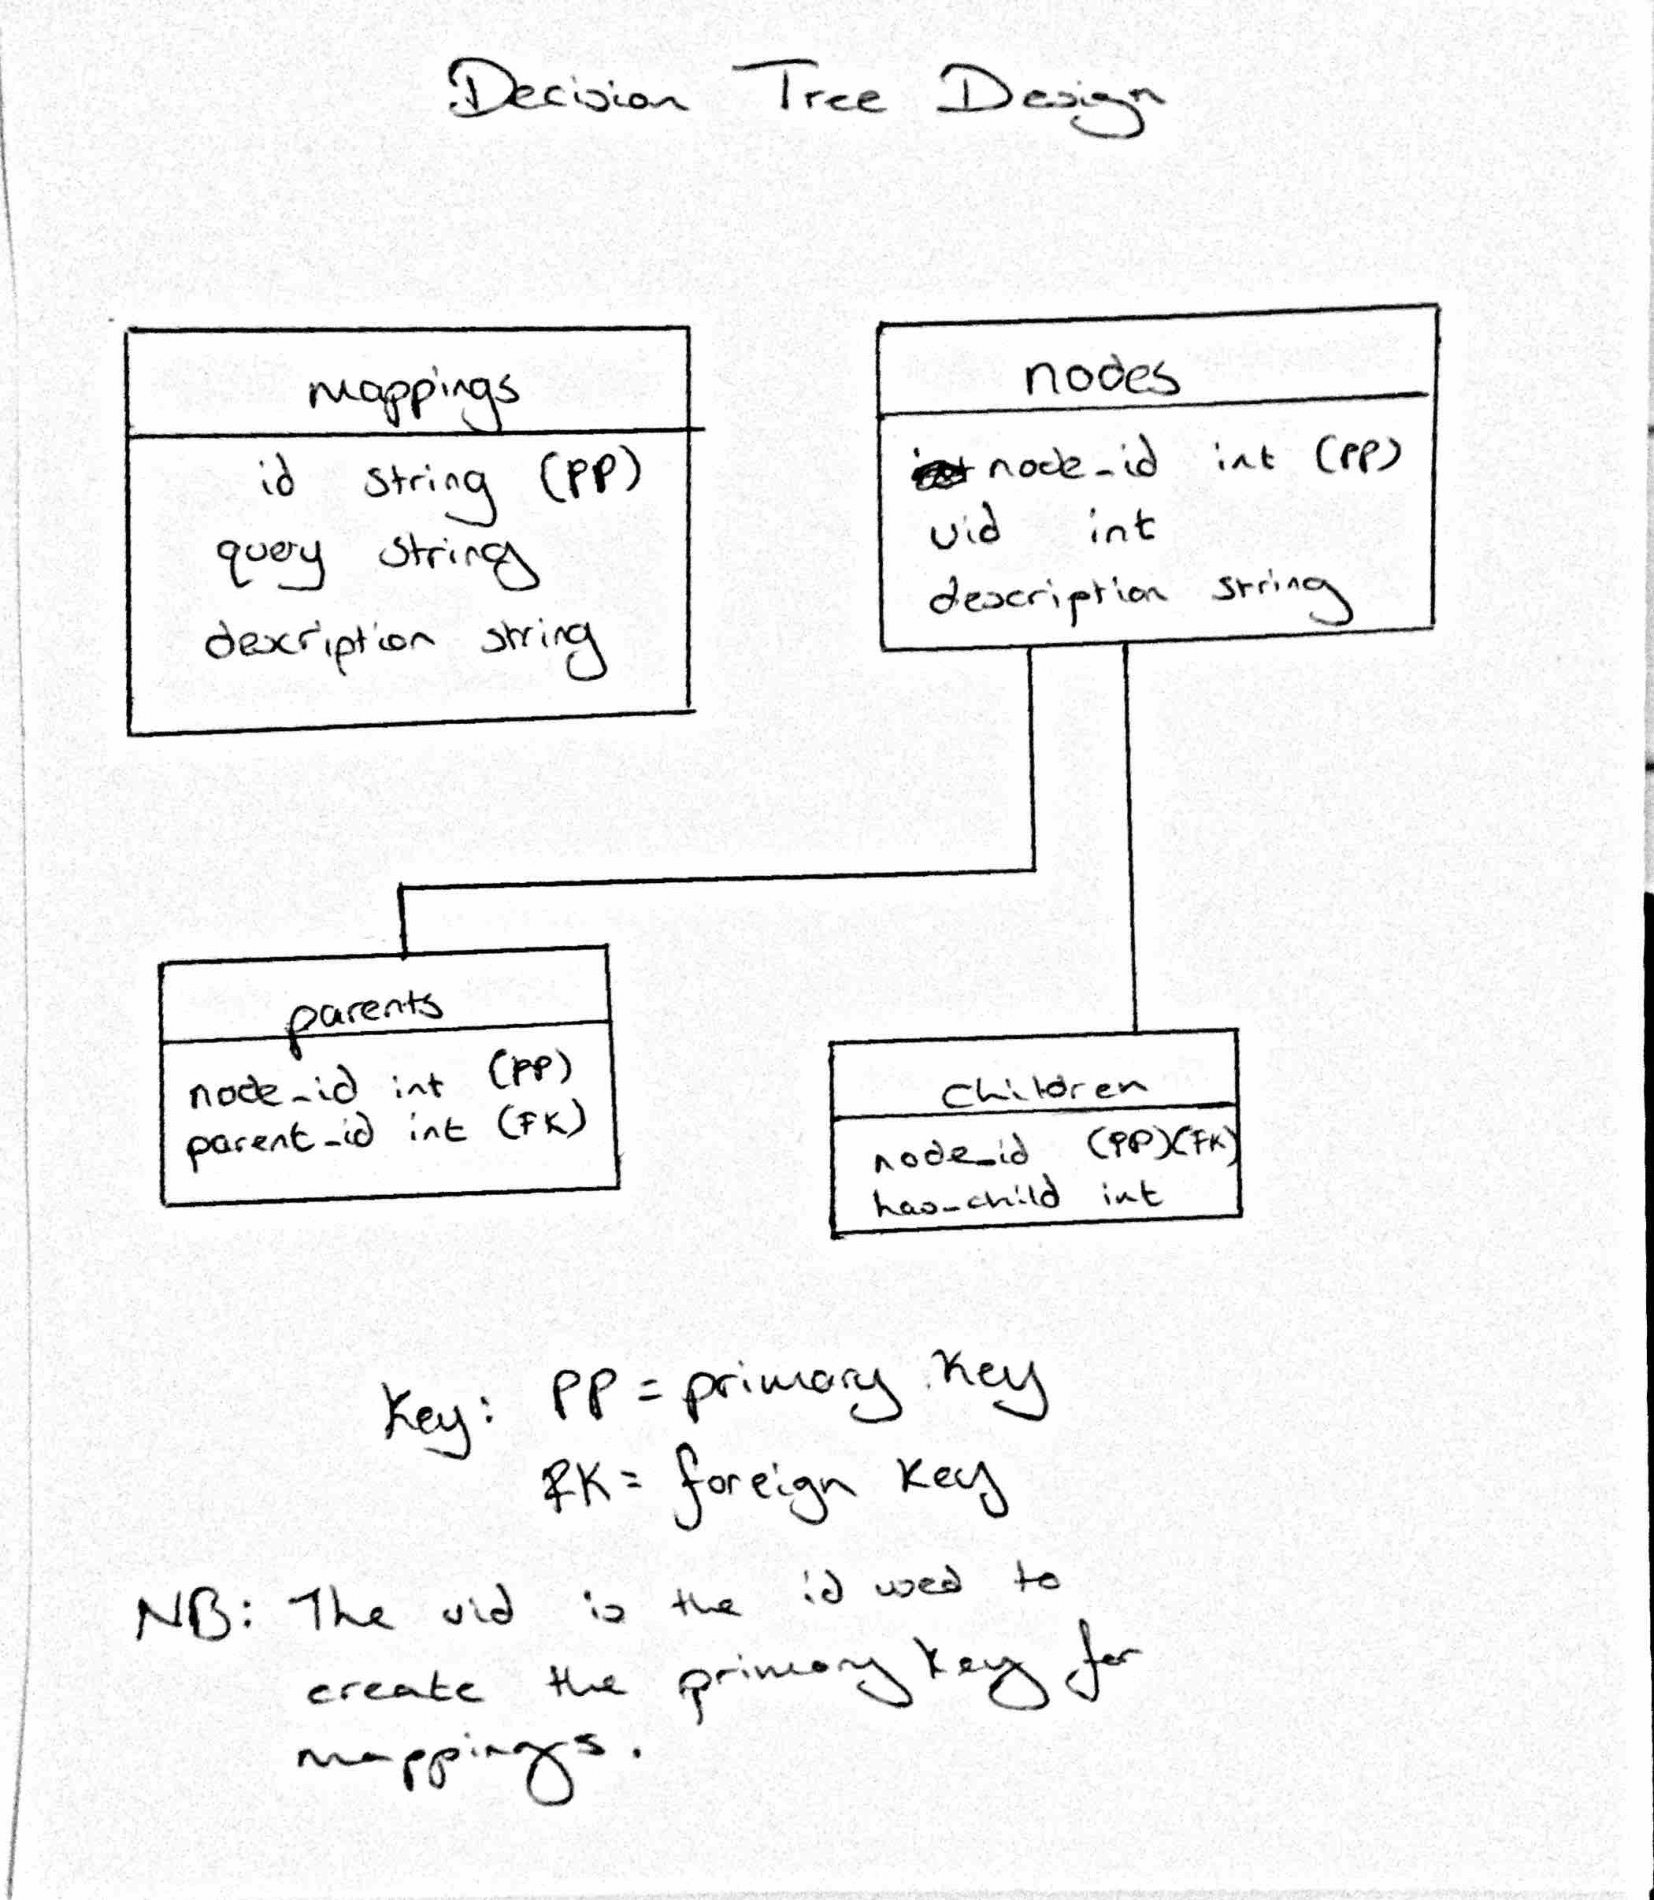 Decision Tree Design
mappings
id string (PP)
query string
description string
nodes
node_id int (PP)
uid int
description string
parents
node_id int (PP)
parent_id int (FK)
children
node_id (PP)(FK)
has_child int
Key: PP = primary key
FK = foreign key
NB: The uid is the id used to
create the primary key for
mappings.